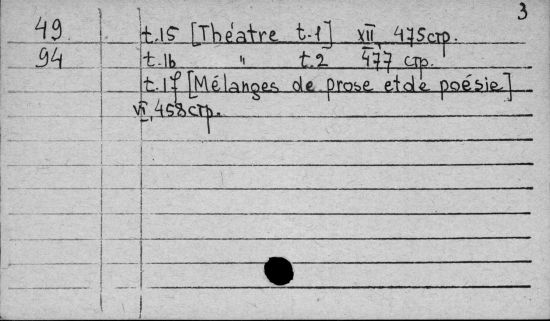 3
49 t.15 [Théatre t.1] XII, 475стр.
94 t.16 " t.2 477 стр.
t.17 [Mélanges de prose et de poésie]
VI, 458стр.